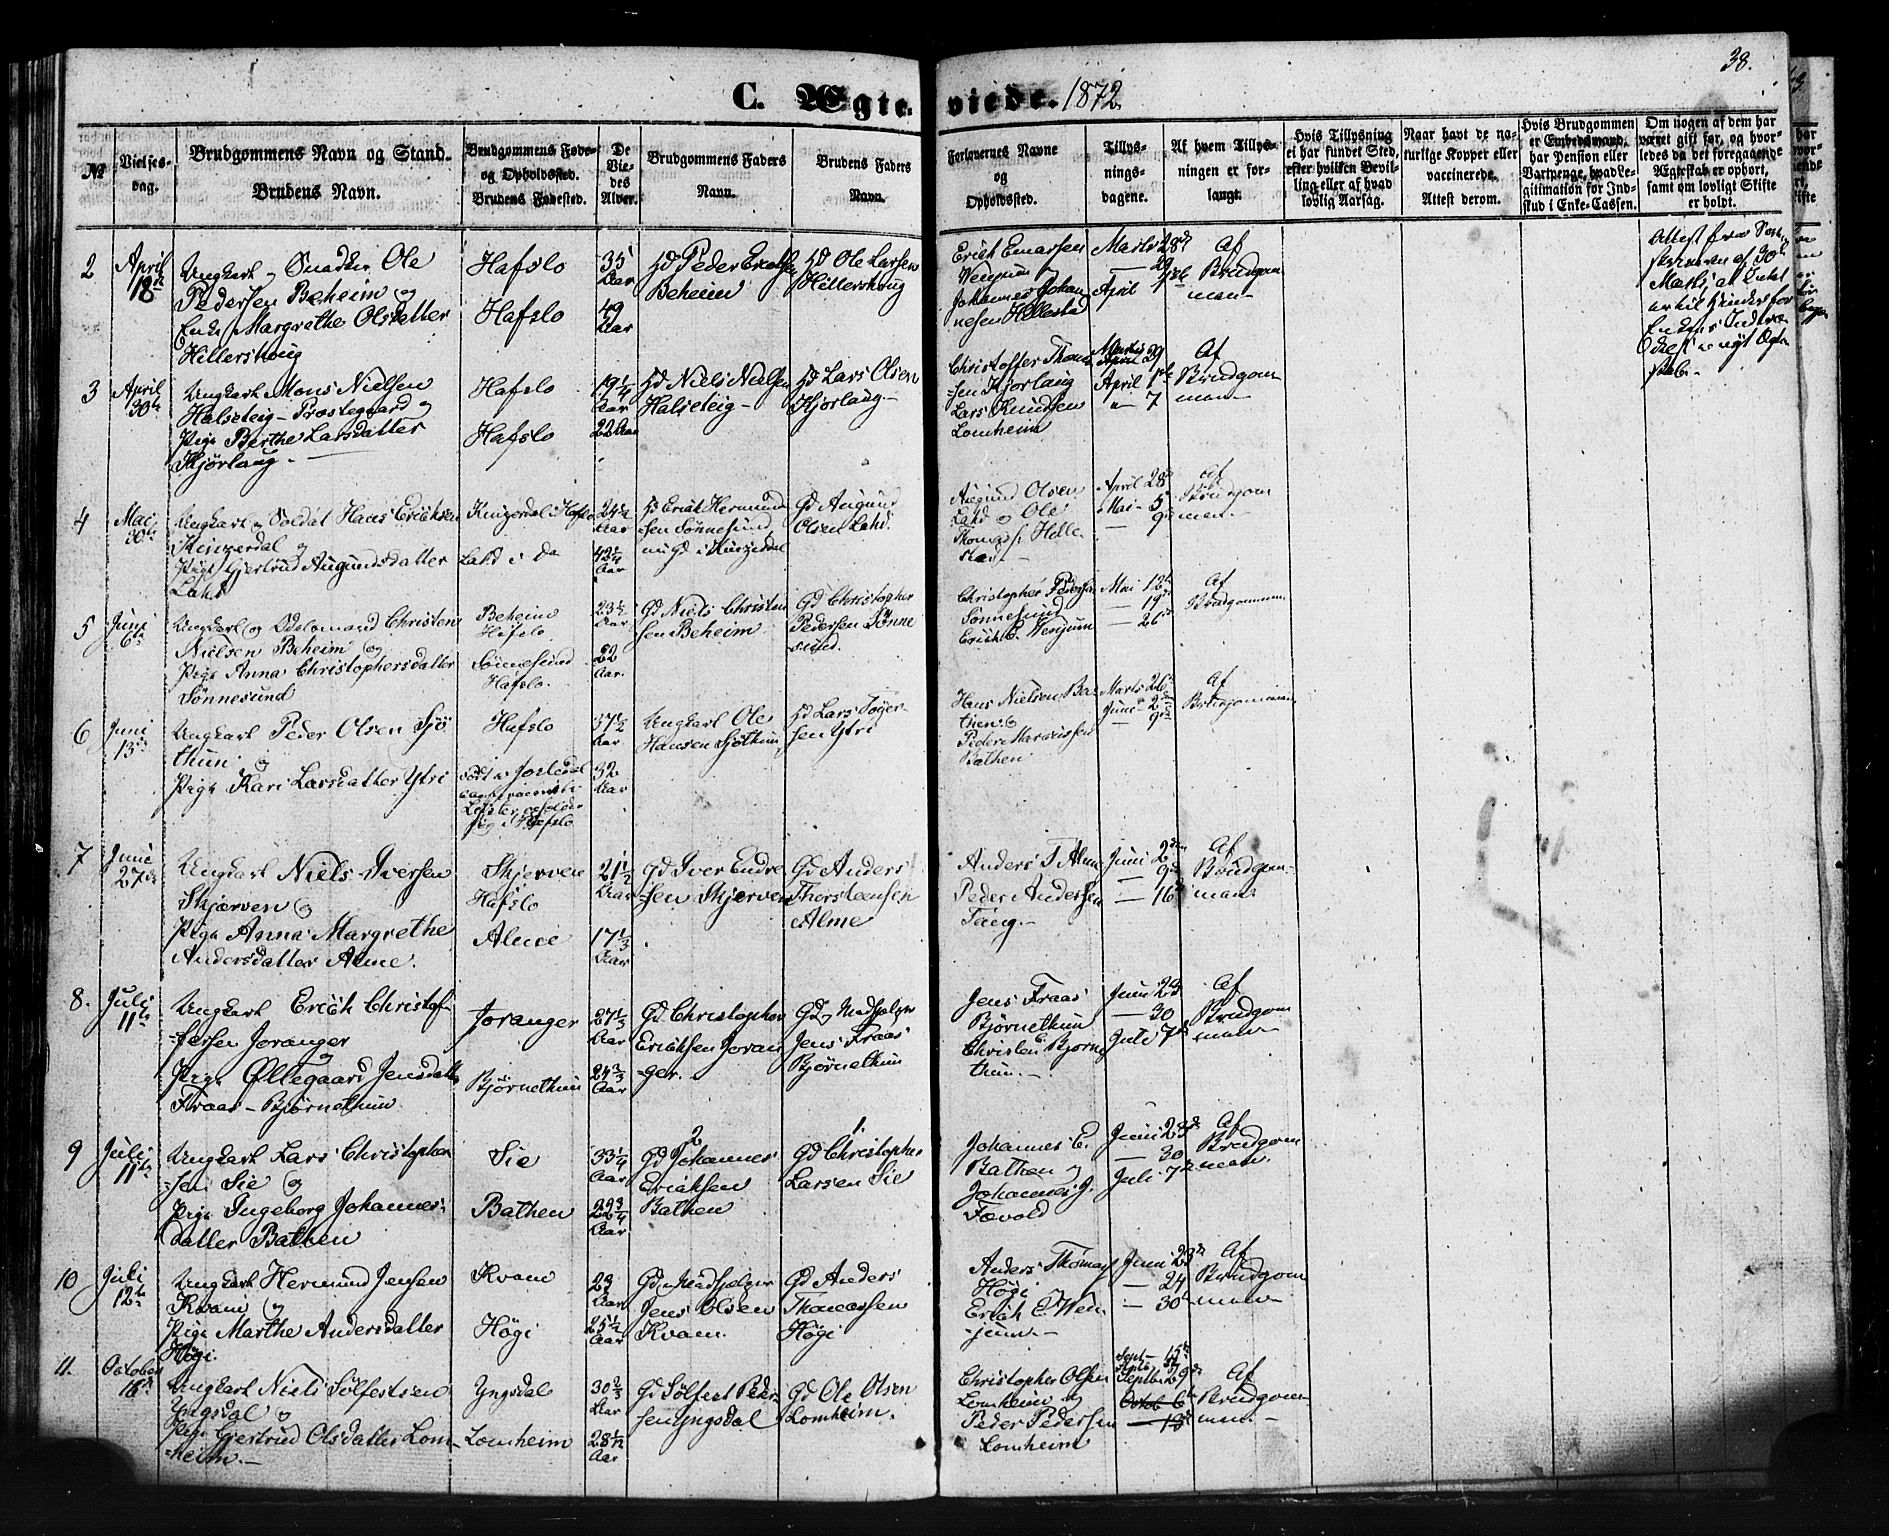 38.
C. Ægte viede. 1872
№
Vielses-
dag.
Brudgommens Navn og Stand.
Brudens Navn.
Brudgommens Føde-
og Opholdssted.
Brudens Fødested.
De
Vie-
des
Alder.
Brudgommens Faders
Navn.
Brudens Faders
Navn.
Forlovernes Navne
og
Opholdssted.
Tillys-
nings-
dagene.
Af hvem Tillys-
ningen er for-
langt.
Hvis Tillysning
ei har fundet Sted,
efter hvilken Bevil-
ling eller af hvad
lovlig Aarsag.
Naar havt de na-
turlige Kopper eller
vaccinerede.
Attest derom.
Hvis Brudgommen
er Embedsmand,
har Pension eller
Vartpenge, hvad Le-
gitimation for Ind-
skud i Enke-Cassen.
Om nogen af dem har
været gift før, og hvor-
ledes da det foregaaende
Ægteskab er ophørt,
samt om lovligt Skifte
er holdt.
2
April
18de
Ungkarl og Snadker Ole
Pedersen Beheim og
Enke Margrethe Olsdatter
Hillershoug
Hafslo
Hafslo
35
Aar
49
Aar
Gd Peder Ericksen
Beheim
Gd Ole Larsen
Hillershoug
Erick Einarsen
Venjum og
Johannes Johan
nesen Hillestad
Marts 28de
— 29
April 7de
Af
Brudgom
man—
Attest fra
af 30te
Marts, at Intet
er til Hinder for
Enkens Indtræ
delse i nyt Ægte
skab.—
3
April
30te
Ungkarl Mons Nielsen
Halsteig — Prostegaard og
Pige Berthe Larsdatter
Kjørlaug —
Hafslo
Hafslo
19 1/4
Aar
22 Aar
Gd Niels Nielsen
Halsteig —
Gd Lars Olsen
Kjørlaug —
Christoffer Thom
sen Kjørlaug
Lars Knudsen
Lomheim
Marts 29
April 1ste
" 7
Af
Brudgom
man—
4
Mai
30te
Ungkarl og Soldat Hans Ericksen
Kinzerdal og
Pige Gjertrud Augundsdatter
Lahd
Kinzerdal i Hafslo
Lahd i do
24 1/2
Aar
42 1/4
Aar
Gd Erick Hermund
sen Sønnesund
nu Gd i Kinzerdal
Gd Augund
Olsen Lahd.
Augund Olsen
Lahd og Ole
Thomas s. Helle
stad
April 28de
Mai 5
— 9de
Af
Brudgom
man.—
5
Juni
6te
Ungkarl og Odelsmand Christen
Nielsen Beheim og
Pige Anna Christophersdatter
Sønnesund
Beheim
Hafslo
Sønnesund
Hafslo.
23 1/2
Aar
22
Aar.
Gd Niels Christen
sen Beheim.
Gd Christopher
Pedersen Sønne
sund.
Christopher Pedersen
Sønnesund
Erick E. Venjum
Mai 12te
— 19de
— 26de
Af
Brudgommen
6
Juni
13de
Ungkarl Peder Olsen Sjø
thun og
Pige Kari Larsdatter Ytri
Hafslo
Født i Jostedal
37 1/2
Aar
32
Aar
Ungkarl Ole
Hansen Sjøthun
Gd Lars Tøger
sen Ytri
Hans Nielsen Ba
then og
Peder
Bathen
Marts 26de
Juni 2den
— 9de
Af
Brudgommen
7
Juni
27de
Ungkarl Niels Iversen
Skjerven og
Pige Anna Margrethe
Andersdatter Alme.
Skjerven
Hafslo
Alme
21 1/2
Aar
17 1/3
Aar
Gd Iver Endre
sen Skjerven
Gd Anders
Thorsteensen
Alme
Anders T Alme
Peder Andersen
Tang.—
Juni 2den
— 9de
— 16de
Af
Brudgom—
man
8.
Juli
11te
Ungkarl Erick Christof—
fersen Joranger
og
Pige Øllegaard Jensdatter
Fraas — Bjørnethun
Joranger
Bjørnethun
27 1/3
Aar
24 2/3
Aar
Gd Christopher
Ericksen Joran
ger.
Gd og
Jens Fraas
Bjørnethun
Jens Fraas
Bjørnethun
Christen E Bjørne
thun.—
Juni 23
— 30
Juli 7de
Af
Brudgom
man—
9
Juli
11te
Ungkarl Lars Christopher
sen Sie og
Pige Ingeborg Johannes
datter Bathen
Sie
Bathen
33 1/4
Aar
22 3/4
Aar
2
Gd Johannes
Ericksen
Bathen
1.
Gd Christopher
Larsen Sie
Johannes E.
Bathen og
Johannes J.
Fævold
Juni 23de
— 30
Juli 7de
Af
Brudgom
man.
10
Juli
12te
Ungkarl Hermund Jensen
Kvam og
Pige Marthe Andersdatter
Høgi.
Kvam
Høgi
23
Aar
25 1/2
Aar
Gd
Jens Olsen
Kvam.
Gd Anders
Thomassen
Høgi
Anders Thomas
Høgi
Erick E. Wen
jum.—
Juni 23de
— 24
— 30te
Af
Brudgom
man—
11.
October
18de
Ungkarl Niels Sølfestsen
Yngsdal og
Pige Gjertrud Olsdatter Lom—
heim.—
Yngsdal
Lomheim
30 2/3
Aar
28 1/12
Aar
Gd Sølfest Peder
sen Yngsdal
Gd Ole Olsen
Lomheim.
Christopher Olsen
Lomheim og
Peder Pedersen
Lomheim
Sept— 15de
Septbr 29de
Octob 6te
— 13de
Af
Brudgom—
man.—